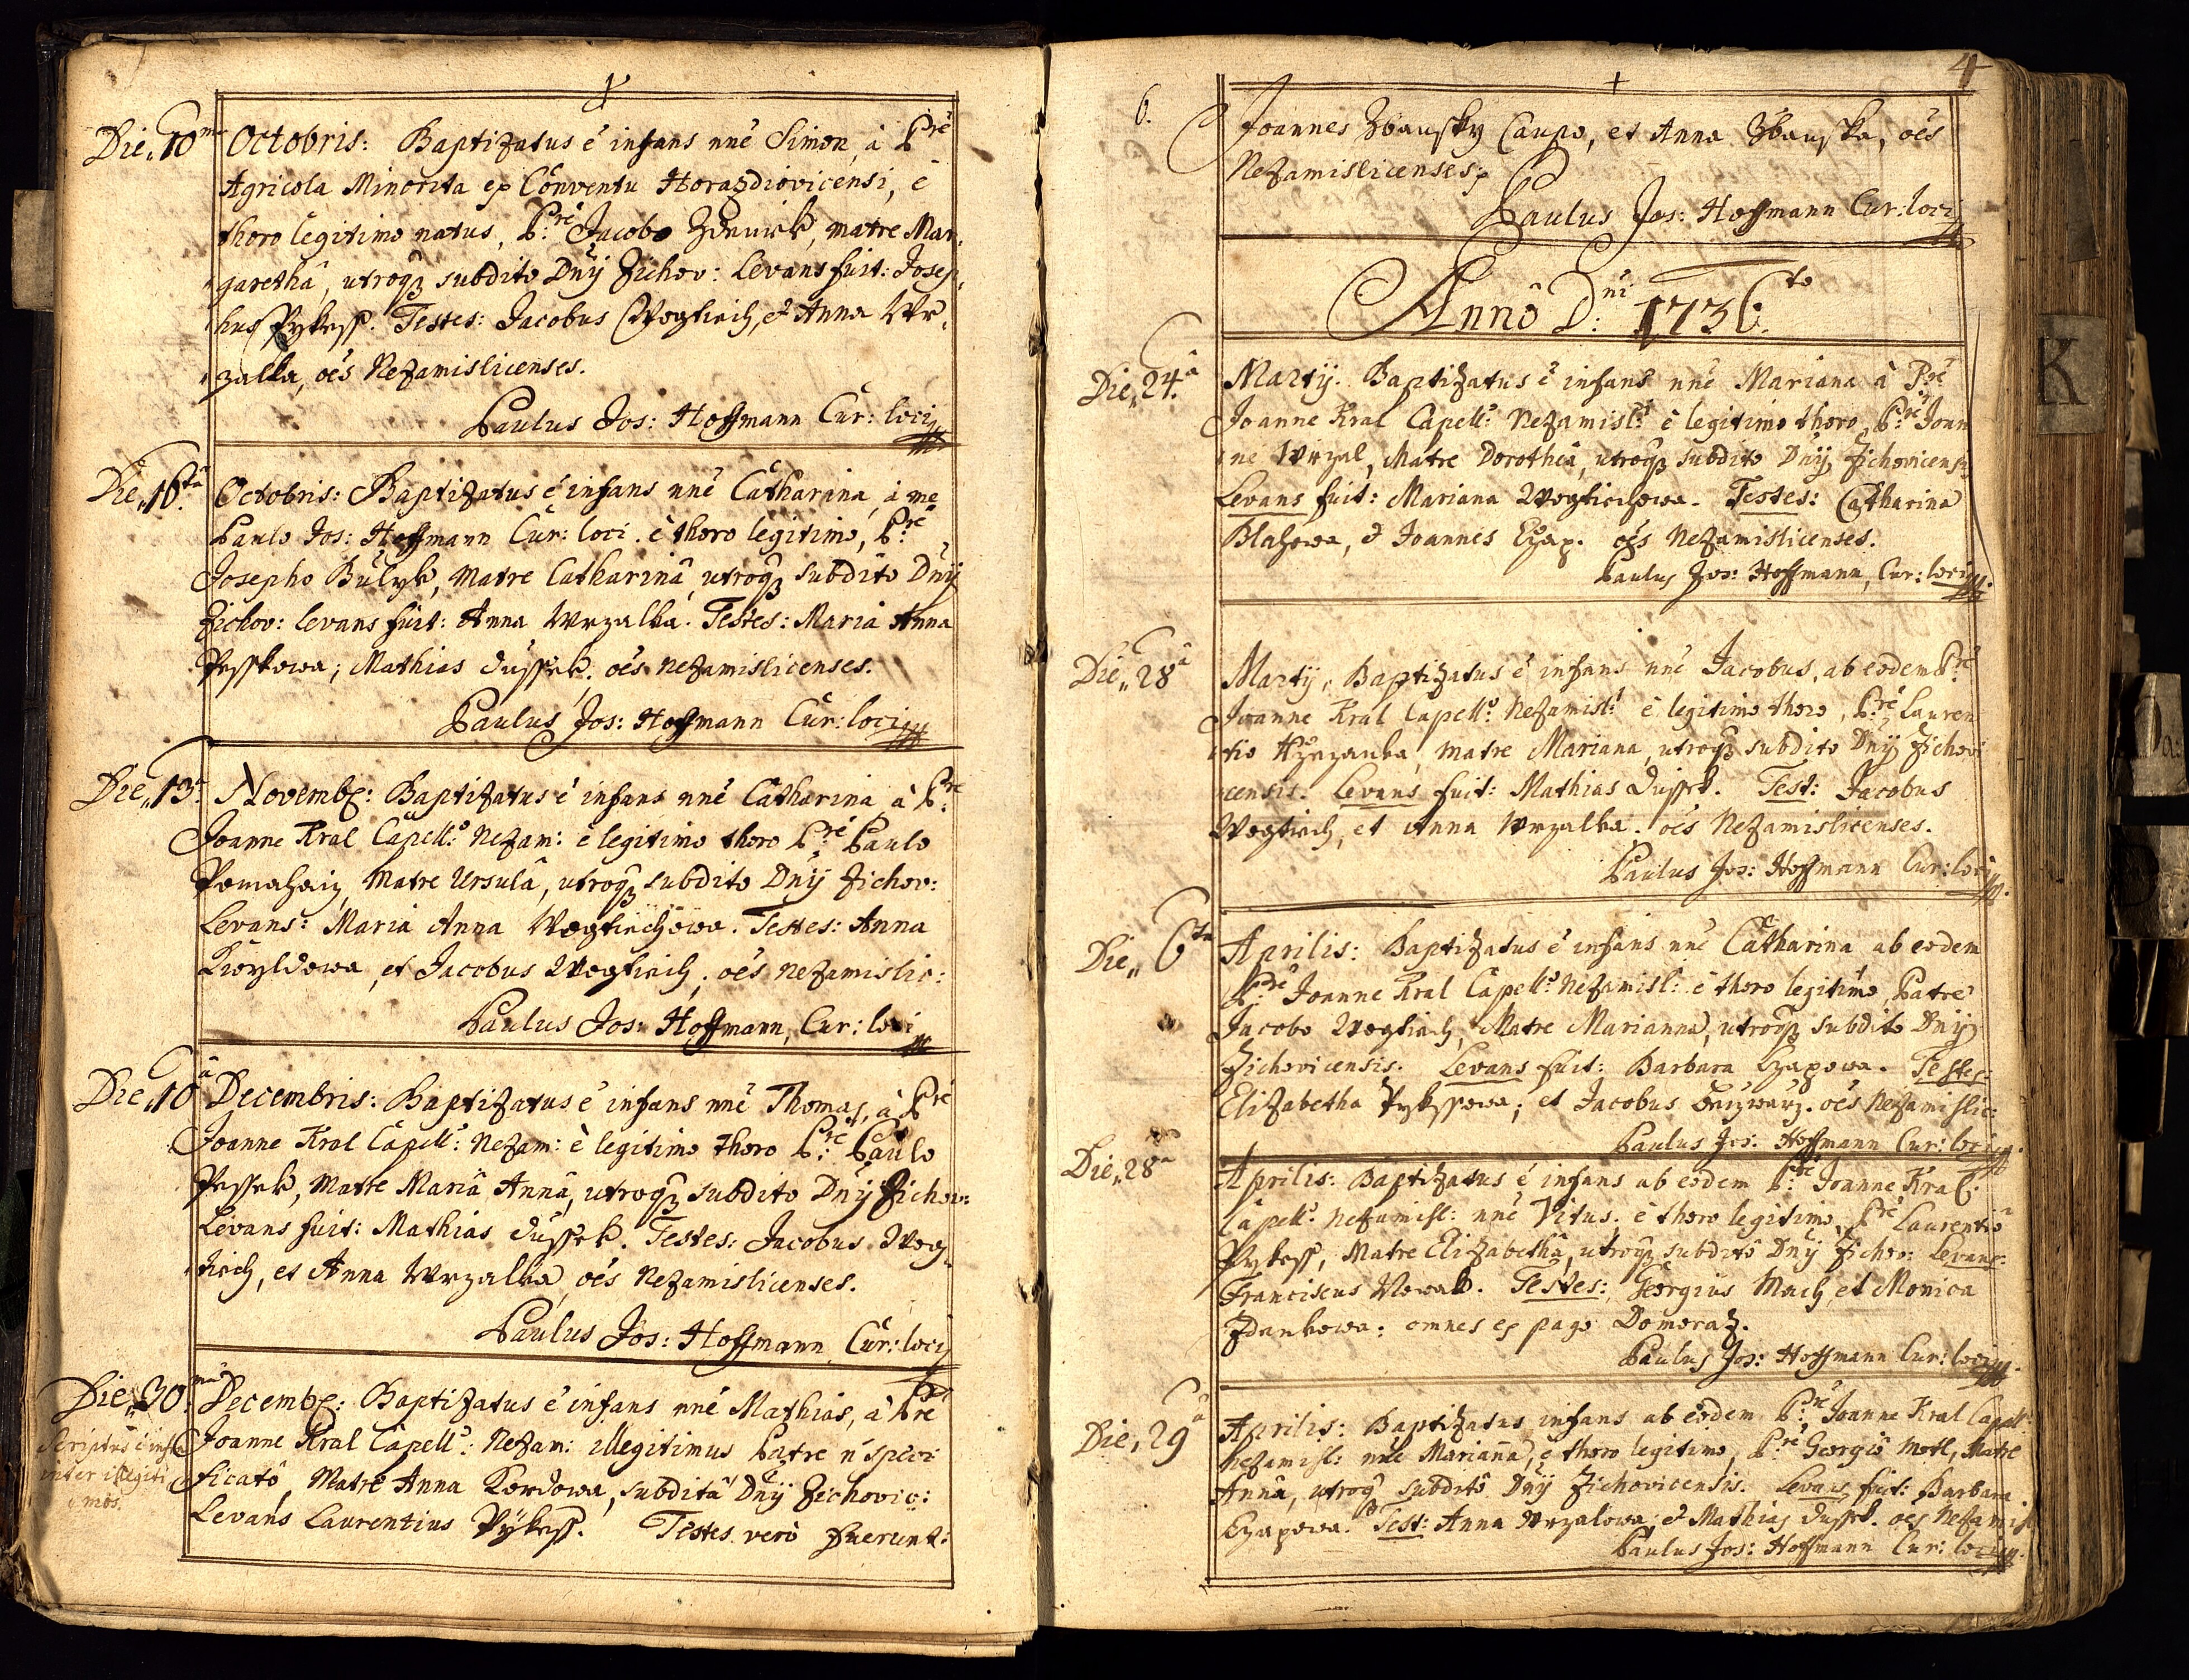 Die 10ma Octobris: Baptizatus é infans nné Simon, à P.re
Agricola Minorita ex Conventu Horazdiovicensi, è
thoro legitimo natus, P.re Jacobo Zdenick, matre Mar
garethâ, utroq3 subdito Dnÿ Zichov: Levans fuit: Josep
hus Pykess. Testes: Jacobus Wogtiech, et Anna Wr
zalka, oés Nezamislicenses.
Paulus Jos: Hoffmann Cur: loci
Die 16ta Octobris: Baptizatus é infans nné Catharina, à me
Paulo Jos: Hoffmann Cur: loci. è thoro legitimo, P.re
Josepho Bulyk, Matre Catharinâ utroq3 subdito Dnÿ
Zichov: Levans fuit: Anna Wrzalka. Testes: Maria Anna
Pesskowa; Mathias Dussek. oés Nezamislicenses.
Paulus Jos: Hoffmann Cur: loci
Die 13. Novemb: Baptizatus é infans nné Catharina à P.re
Joanne Kral Capell: Nezam: è legitimo thoro P.re Paulo
Pomahaiz, Matre Ursulâ, utroq3 subdito Dnÿ Zichov:
Levans: Maria Anna Wogtiechowa. Testes: Anna
Kwyldowa, et Jacobus Wogtiech, oés Nezamislic:
Paulus Jos: Hoffmann, Cur: loci
Die 10a Decembris: Baptizatus é infans nné Thomas, à P.re
Joanne Kral Capell: Nezam: è legitimo thoro P.re Paulo
Pessek, Matre Mariâ Annâ, utroq3 subdito Dnÿ Zichov:
Levans fuit: Mathias Dussek. Testes: Jacobus Wog
tiech, et Anna Wrzalka, oés Nezamislicenses.
Paulus Jos: Hoffmann Cur: loci
Die 30.ma Decemb: Baptizatus é infans nné Mathias, à P.re
Joanne Kral Capell: Nezam: illegitimus Patre ñ speci
ficatô, Matre Anna Kordowa, subditâ Dnÿ Zichovic:
Levans Laurentius Pÿkess. Testes verò fuerunt:
Scriptus é infra
inter illegiti
mos.
4
6.
Joannes Zbausky Caupo, et Anna Zbauska, oés
Nezamislicenses.
Paulus Jos: Hoffmann Cur: loci
Annô D:ni 1736to
Die 24.a Martÿ. Baptizatus é infans nné Mariana à P.re
Joanne Kral Capell: Nezamisl: è legitimo thoro, P.re Joan
ne Wrzal, Matre Dorothea, utroq3 subdito Dnÿ Zichovicensi
Levans fuit: Mariana Wogtiechowa. Testes: Catharina
Blahowa, et Joannes Czap. oés Nezamislicenses.
Paulus Jos: Hoffmann, Cur: loci
Die 28a Martÿ, Baptizatus é infans nné Jacobus, ab eodem P.re
Joanne Kral Capell: Nezamisl: è legitimo thoro, P.re Lauren
tio matre Mariana, utroq3 subdito Dnÿ Zichovi
censis. Levans fuit: Mathias Dussek. Test: Jacobus
Wogtiech, et Anna Wrzalka. oés Nezamislicenses.
Paulus Jos: Hoffmann Cur: loci
Die 6ta Aprilis: Baptizatus é infans nné Catharina ab eodem
P.re Joanne Kral Capell: Nezamisl: è thoro legitimo, Patre
Jacobo Wogtiech, Matre Marianna, utroq3 subdito Dnÿ
Zichovicensis. Levans fuit: Barbara Czapowa. Testes:
Elizabetha Pykessowa; et Jacobus oés Nezamislic:
Paulus Jos: Hoffmann Cur: loci
Die 28a Aprilis: Baptizatus é infans ab eodem P.re Joanne Kral
Capell: Nezamisl: nné Vitus. è thoro legitimo, P.re Laurentio
Pykess, Matre Elizabethâ, utroq3 subditô Dnÿ Zichov: Levans:
Franciscus Nowak. Testes: Georgius Mach, et Monica
Zdenkowa: omnes ex pago Domoraz.
Paulus Jos: Hoffmann Cur: loci
Die 29a Aprilis: Baptizatus infans ab eodem P.re Joanne Kral Capell:
Nezamisl: nné Marianna, è thoro legitimo, P.re Georgiô Motl, Matre
Annâ, utroq3 subditô Dnÿ Zichovicensis. Levans fuit: Barbara
Czapowa. Test: Anna Wrzalowa; et Mathias Dussek. oés Nezamisl
Paulus Jos: Hoffmann Cur: loci
K